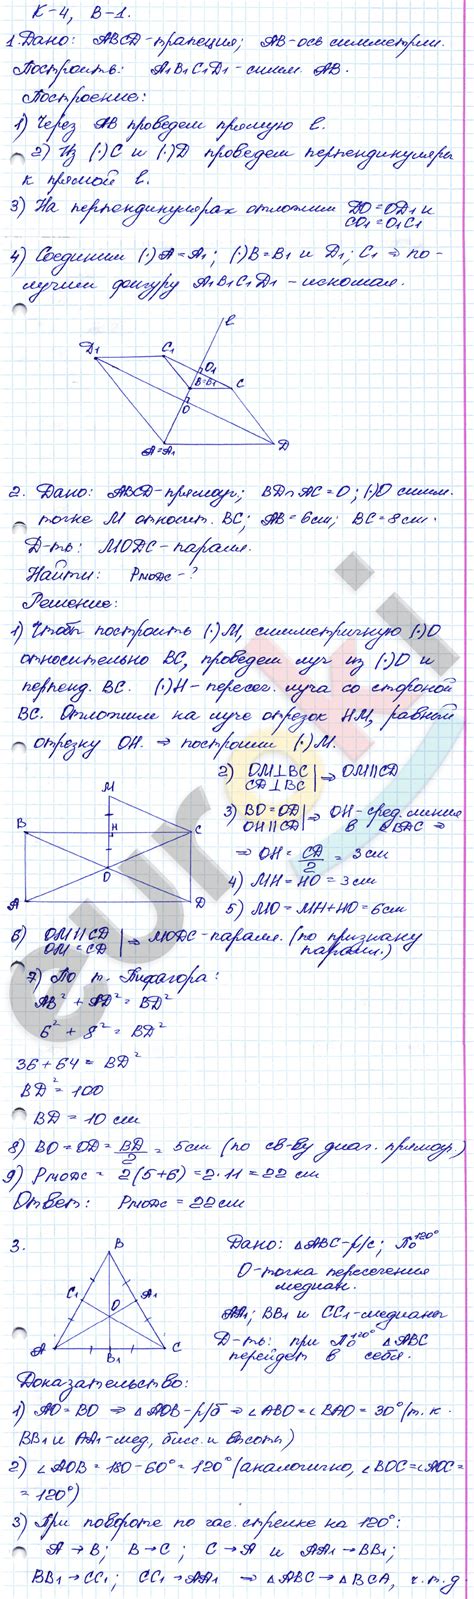 К-4, В-1.
1. Дано: ABCD-трапеция; AB-ось симметрии.
Построить: A₁B₁C₁D₁-симм. AB.
Построение:
1) Через AB проведем прямую l.
2) Из (·)C и (·)D проведем перпендикуляры
к прямой l.
3) На перпендикулярах отложим DO=OD₁ и
CO₁=O₁C₁
4) Соединим (·)A=A₁; (·)B=B₁ и D₁; C₁ ⇒ по-
лучили фигуру A₁B₁C₁D₁-искомая.
l
D₁ C₁ O₁
B=B₁ C
O
A=A₁ D
2. Дано: ABCD-прямоуг; BD∩AC=O; (·)O симм.
точке M относит. BC; AB=6см; BC=8см.
Д-ть: MODC-паралл.
Найти: Pmodc-?
Решение:
1) Чтобы построить (·)M, симметричную (·)O
относительно BC, проведем луч из (·)O и
перпенд. BC. (·)H-пересеч. луча со стороной
BC. Отложим на луче отрезок HM, равный
отрезку OH. ⇒ построим (·)M.
2) OM⊥BC
CD⊥BC | ⇒ OM||CD
3) BO=OD
OH||CD | ⇒ OH-сред. линия
в △BDC ⇒
⇒ OH = CD/2 = 3см
4) MH=HO=3см
5) MO=MH+HO=6см
M
B H C
O
A D
6) OM||CD
OM=CD | ⇒ MODC-паралл. (по признаку
паралл.)
7) По т. Пифагора:
AB²+AD²=BD²
6²+8²=BD²
36+64=BD²
BD²=100
BD=10 см
8) BO=OD=BD/2=5см (по св-ву диаг. прямоуг.)
9) Pmodc=2(5+6)=2·11=22 см
Ответ: Pmodc=22см
3.
B
C₁ A₁
O
A B₁ C
Дано: △ABC-р/с; По¹²⁰°
O-точка пересечения
медиан.
AA₁; BB₁ и CC₁-медианы
Д-ть: при По¹²⁰° △ABC
перейдет в себя.
Доказательство:
1) AO=BO ⇒ △AOB-р/б ⇒ ∠ABO=∠BAO=30° (т.к.
BB₁ и AA₁-мед, бисс. и высоты)
2) ∠AOB=180-60°=120° (аналогично, ∠BOC=∠AOC=
=120°)
3) При повороте по час. стрелке на 120°:
A→B; B→C; C→A и AA₁→BB₁;
BB₁→CC₁; CC₁→AA₁ ⇒ △ABC→△BCA, ч.т.д.
euroki